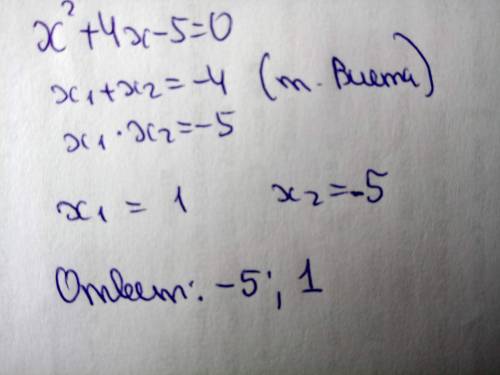 x²+4x-5=0
x₁+x₂=-4 (т. Виета)
x₁·x₂=-5
x₁ = 1 x₂=-5
Ответ: -5; 1